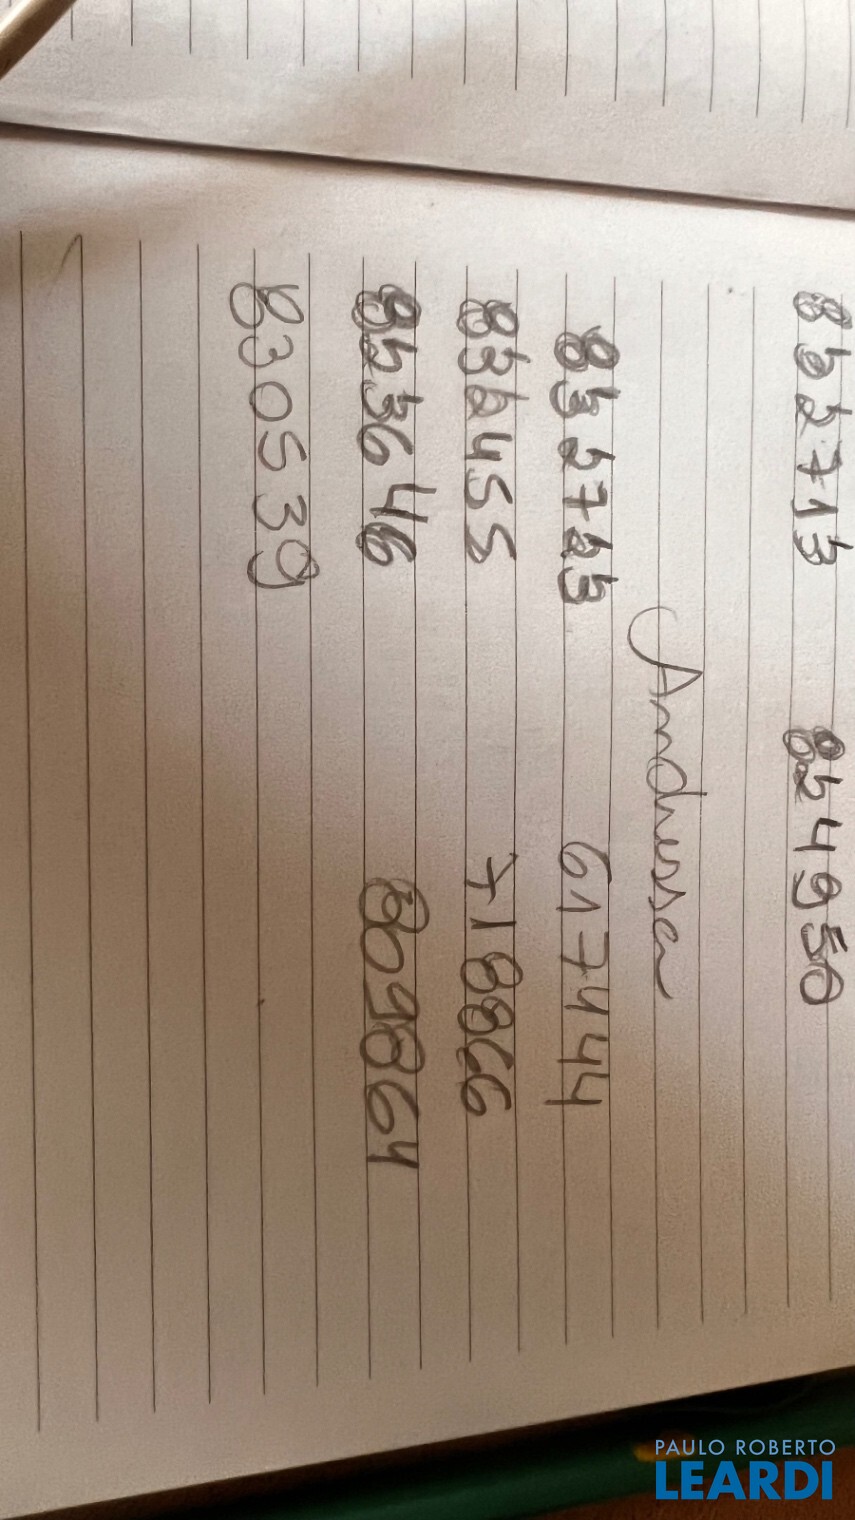 852713 824950
Andressa
852723 617444
832455 718866
853646 809864
830539
PAULO ROBERTO
LEARDI